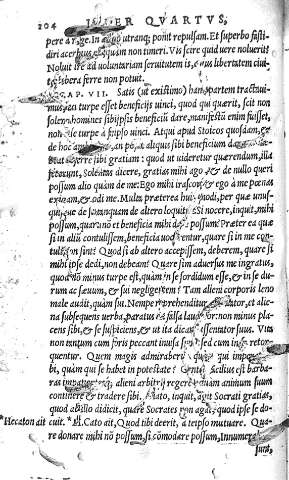 104 LIBER QVARTVS,
pere In utranq; ponit repulsam. Et superbo fasti-
diri acerbum quam non timeri. Vis scire quid uere noluerit?
Noluit ire ad uoluntariam seruitutem is, cuius libertatem ciui-
tas libera ferre non potuit.
CAP. VII. Satis (ut existimo) hanc partem tractaui-
mus, an turpe esset beneficijs uinci, quod qui quærit, scit non
solere homines sibi ipsis beneficiũ dare, manifestũ enim fuisset,
non esse turpe à seipso uinci. Atqui apud Stoicos quosdam, &
de hoc an possit aliquis sibi beneficium dare,
an debeat referre sibi gratiam: quod ut uideretur quærendum, illa
Solemus dicere, gratias mihi ago & de nullo queri
possum alio quàm de me: Ego mihi irascor, & ego à me pœnas
exigam, & odi me. Multa præterea huiusmodi, per quæ unus-
quisque de se tanquam de altero loquitur. Si nocere, inquit, mihi
possum, quare nõ et beneficia mihi dare possum? Præterea quæ
si in aliũ contulissem, beneficia uocarentur, quare si in me con-
tuli, non sint? Quod si ab altero accepissem, deberem, quare si
mihi ipse dedi, non debeam? Quare sim aduersus me ingratus,
quod nõ minus turpe est, quàm in se sordidum esse, & in se du-
rum ac sæuum, & sui negligentem? Tam alieni corporis leno
male audit, quàm sui. Nempe reprehenditur assentator, et alie-
na subsequens uerba, paratus ad falsa laudator: non minus pla-
cens sibi, & se suspiciens, & ut ita dicam assentator suus. Vitia
non tantum cum foris peccant inuisa sunt, sed cum in se retor-
quentur. Quem magis admiraberis quàm qui imperat
sibi, quàm qui se habet in potestate? Gentes facilius est barba-
ras impatientesq; alieni arbitrij regere, quàm animum suum
continere & tradere sibi. Plato, inquit, agit Socrati gratias,
quod ab illo didicit, quare Socrates non agat, quod ipse se do-
*Hecaton ait cuit. *M. Cato ait, Quod tibi deerit, à teipso mutuare. Qua-
re donare mihi nõ possum, si cõmodare possum, Innumera-